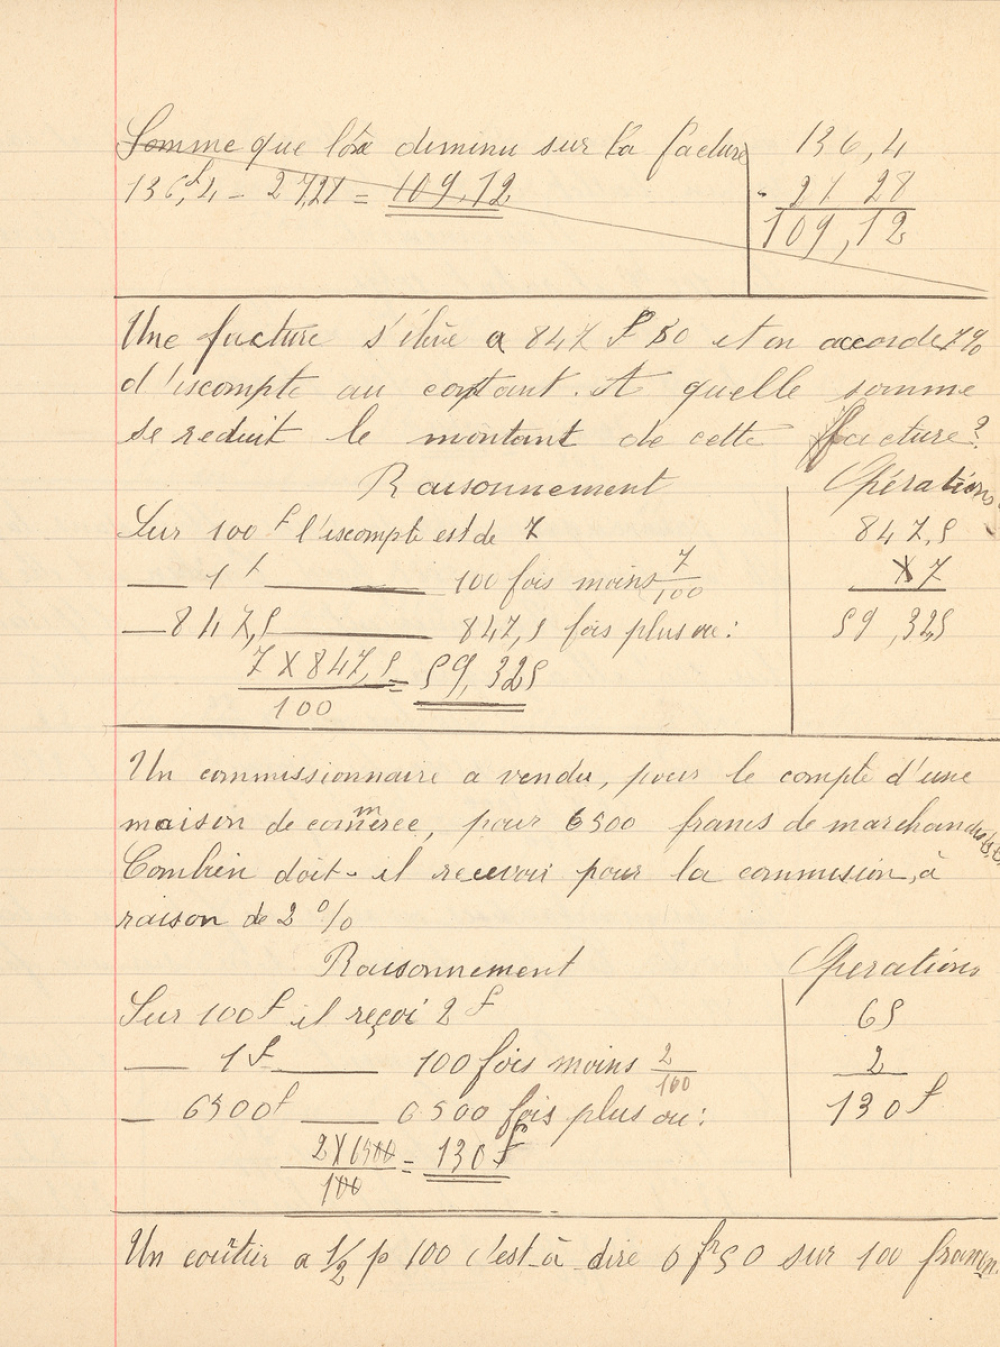 Somme que l'on diminu sur la facture 136,4
136f,4 - 27,28 = 109.12 - 27 28
109,12
Une facture s'élève a 847 f 50 et on accorde 7%
d'iscompte au contant. A quelle somme
se reduit le montant de cette facture?
Raisonnement Opérations
Sur 100 f l'iscompte est de 7 847,5
— 1 f — 100 fois moins 7/100 x 7
— 847,5 — 847,5 fois plus ou: 59,325
7 X 847,5 = 59,325
100
Un commissionnaire a vendu, pour le compte d'une
maison de commerce, pour 6500 francs de marchandises
Combien doit-il recevoir pour la commision, à
raison de 2 %
Raisonnement Operations
Sur 100 f il reçoi 2 f 65
— 1 f — 100 fois moins 2/100 2
— 6500 f — 6500 fois plus ou: 130 f
2 X 6500 = 130 f
100
Un coûtier a 1/2 p 100 c'est-à-dire 0 fr 50 sur 100 francs